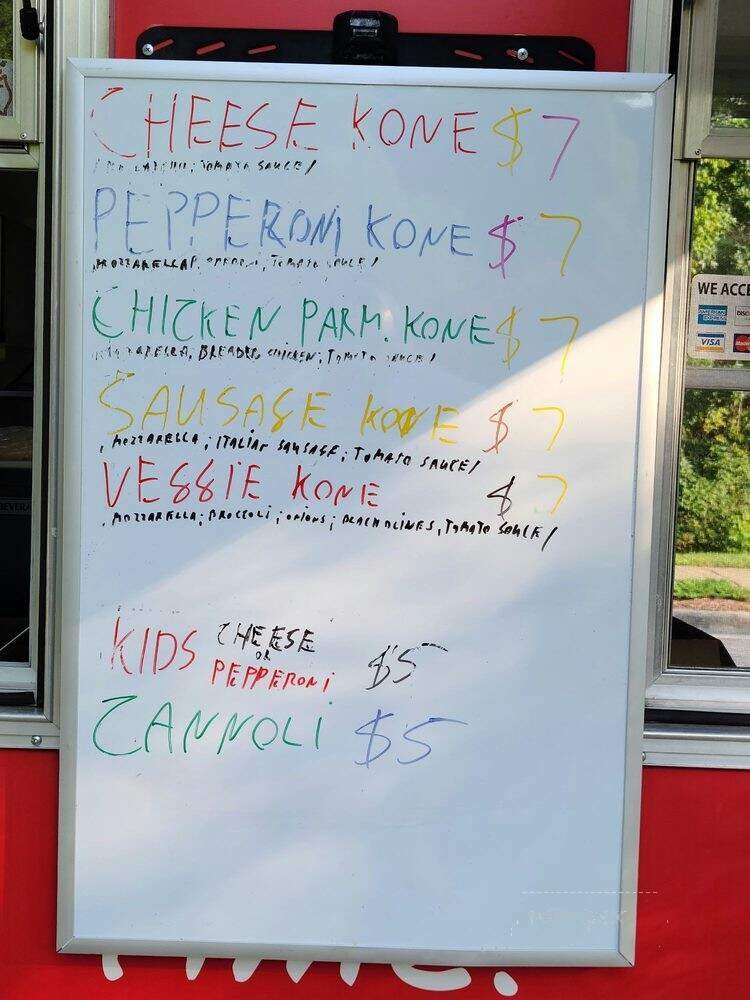 CHEESE KONE $7
TOMATO SAUCE/
PEPPERONI KONE $7
MOZZARELLA TOMATO SAUCE/
CHICKEN PARM. KONE $7
BREADED CHICKEN; TOMATO SAUCE/
SAUSAGE KONE $7
MOZZARELLA; ITALIAN SAUSAGE; TOMATO SAUCE/
VEGGIE KONE $7
MOZZARELLA; BROCCOLI; ONIONS; BLACK OLINES, TOMATO SAUCE/
KIDS CHEESE OR PEPPERONI $5
CANNOLI $5
WE ACCE
AMERICAN EXPRESS DISC
VISA Maste
BEVERA